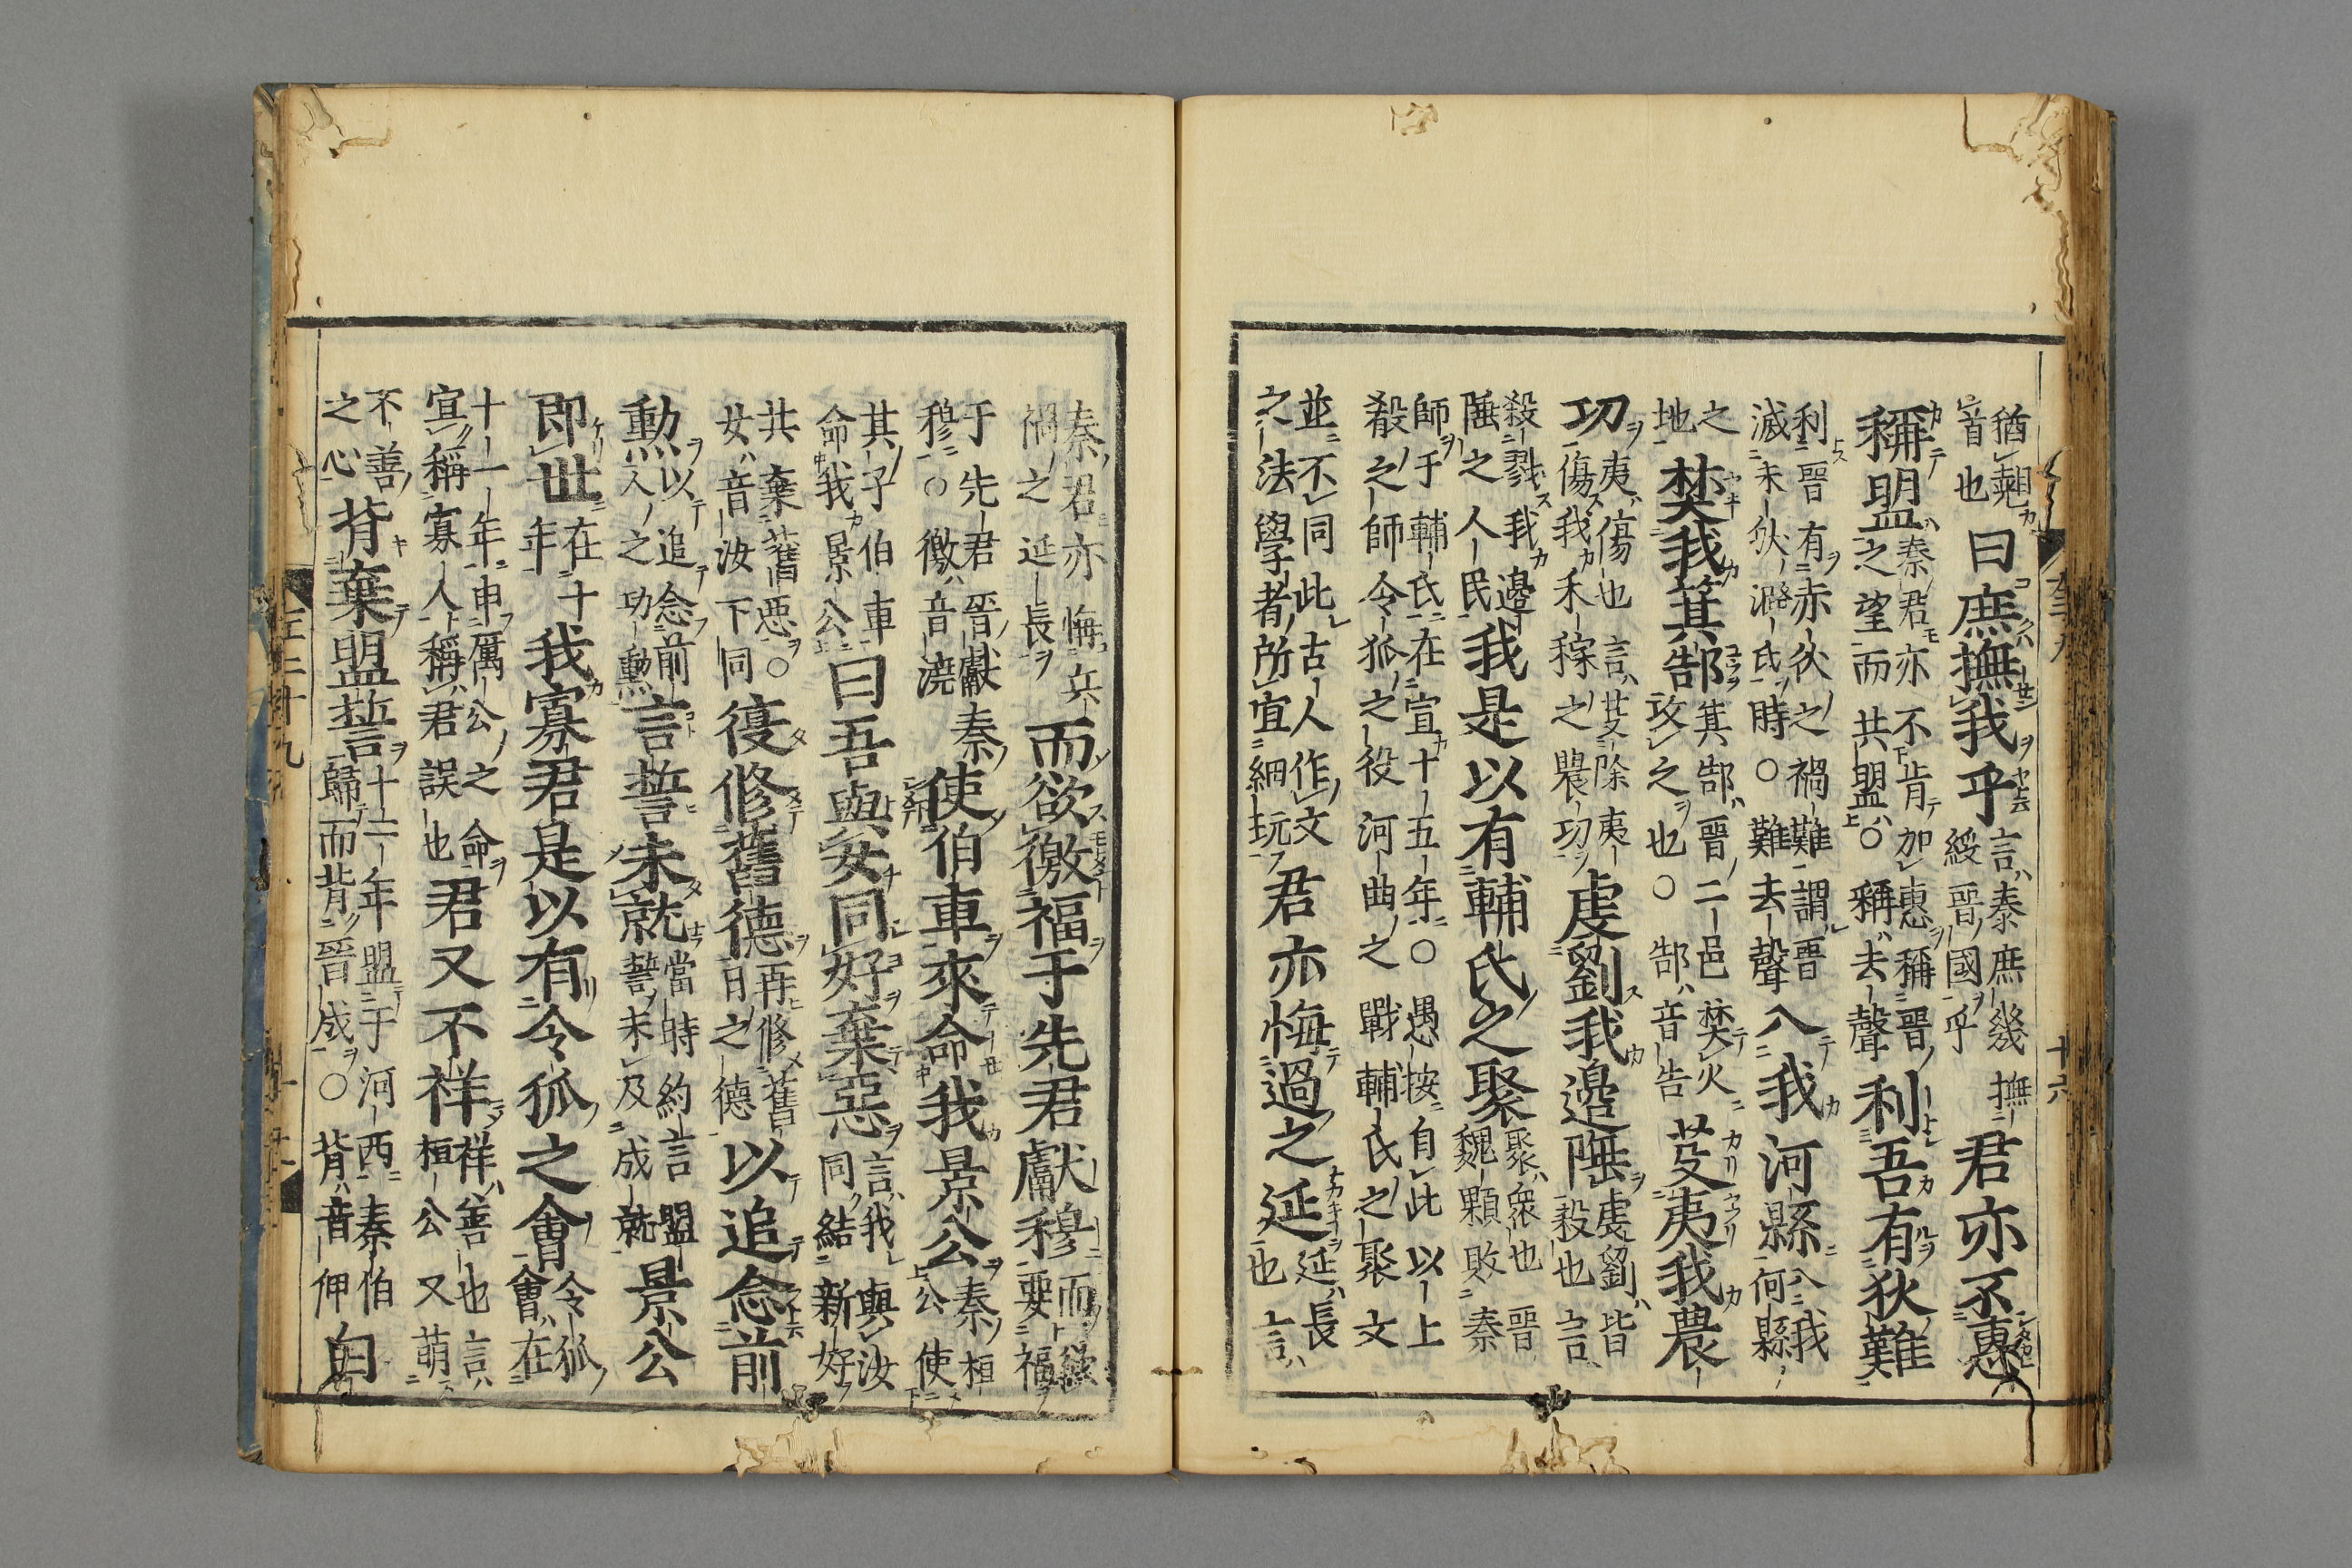 猶翹首也曰庶撫我乎言泰庶幾撫綏晉國乎君亦不惠
稱盟秦君亦不肯加惠稱晉之望而共盟〇稱去聲利吾有狄難
利晉有赤狄之禍難謂晉滅赤狄潞氏時〇難去聲入我河縣入我河縣
之地焚我箕郜箕郜晉二邑焚火攻之也〇郜音告芟夷我農
功夷傷也言芟除夷傷我禾稼之農功虔劉我邊陲虔劉皆殺也言
殺戮我邊陲之人民我是以有輔氏之聚聚衆也晉魏顆敗秦
師于輔氏在宣十五年〇愚按自此以上殽之師令狐之役河曲之戰輔氏之聚文
並不同此古人作文之法學者所宜細玩君亦悔過之延延長也言
秦君亦悔兵禍之延長而欲徼福于先君獻穆而欲要福
于先君晉獻秦穆〇徼音澆使伯車來命我景公秦桓公使
其子伯車命我景公曰吾與女同好棄惡言我與汝同結新好
共棄舊惡〇女音汝下同復修舊德再修舊日之德以追念前
勲以追念前人之功勲言誓未就當時約言盟誓未及成就景公
即世在十年我寡君是以有令狐之會令狐會在
十一年申厲公之命宜稱寡人稱君誤也君又不祥祥善也言桓公又萌
不善之心背棄盟誓十一年盟于河西秦伯歸而背晉成〇背音佩白